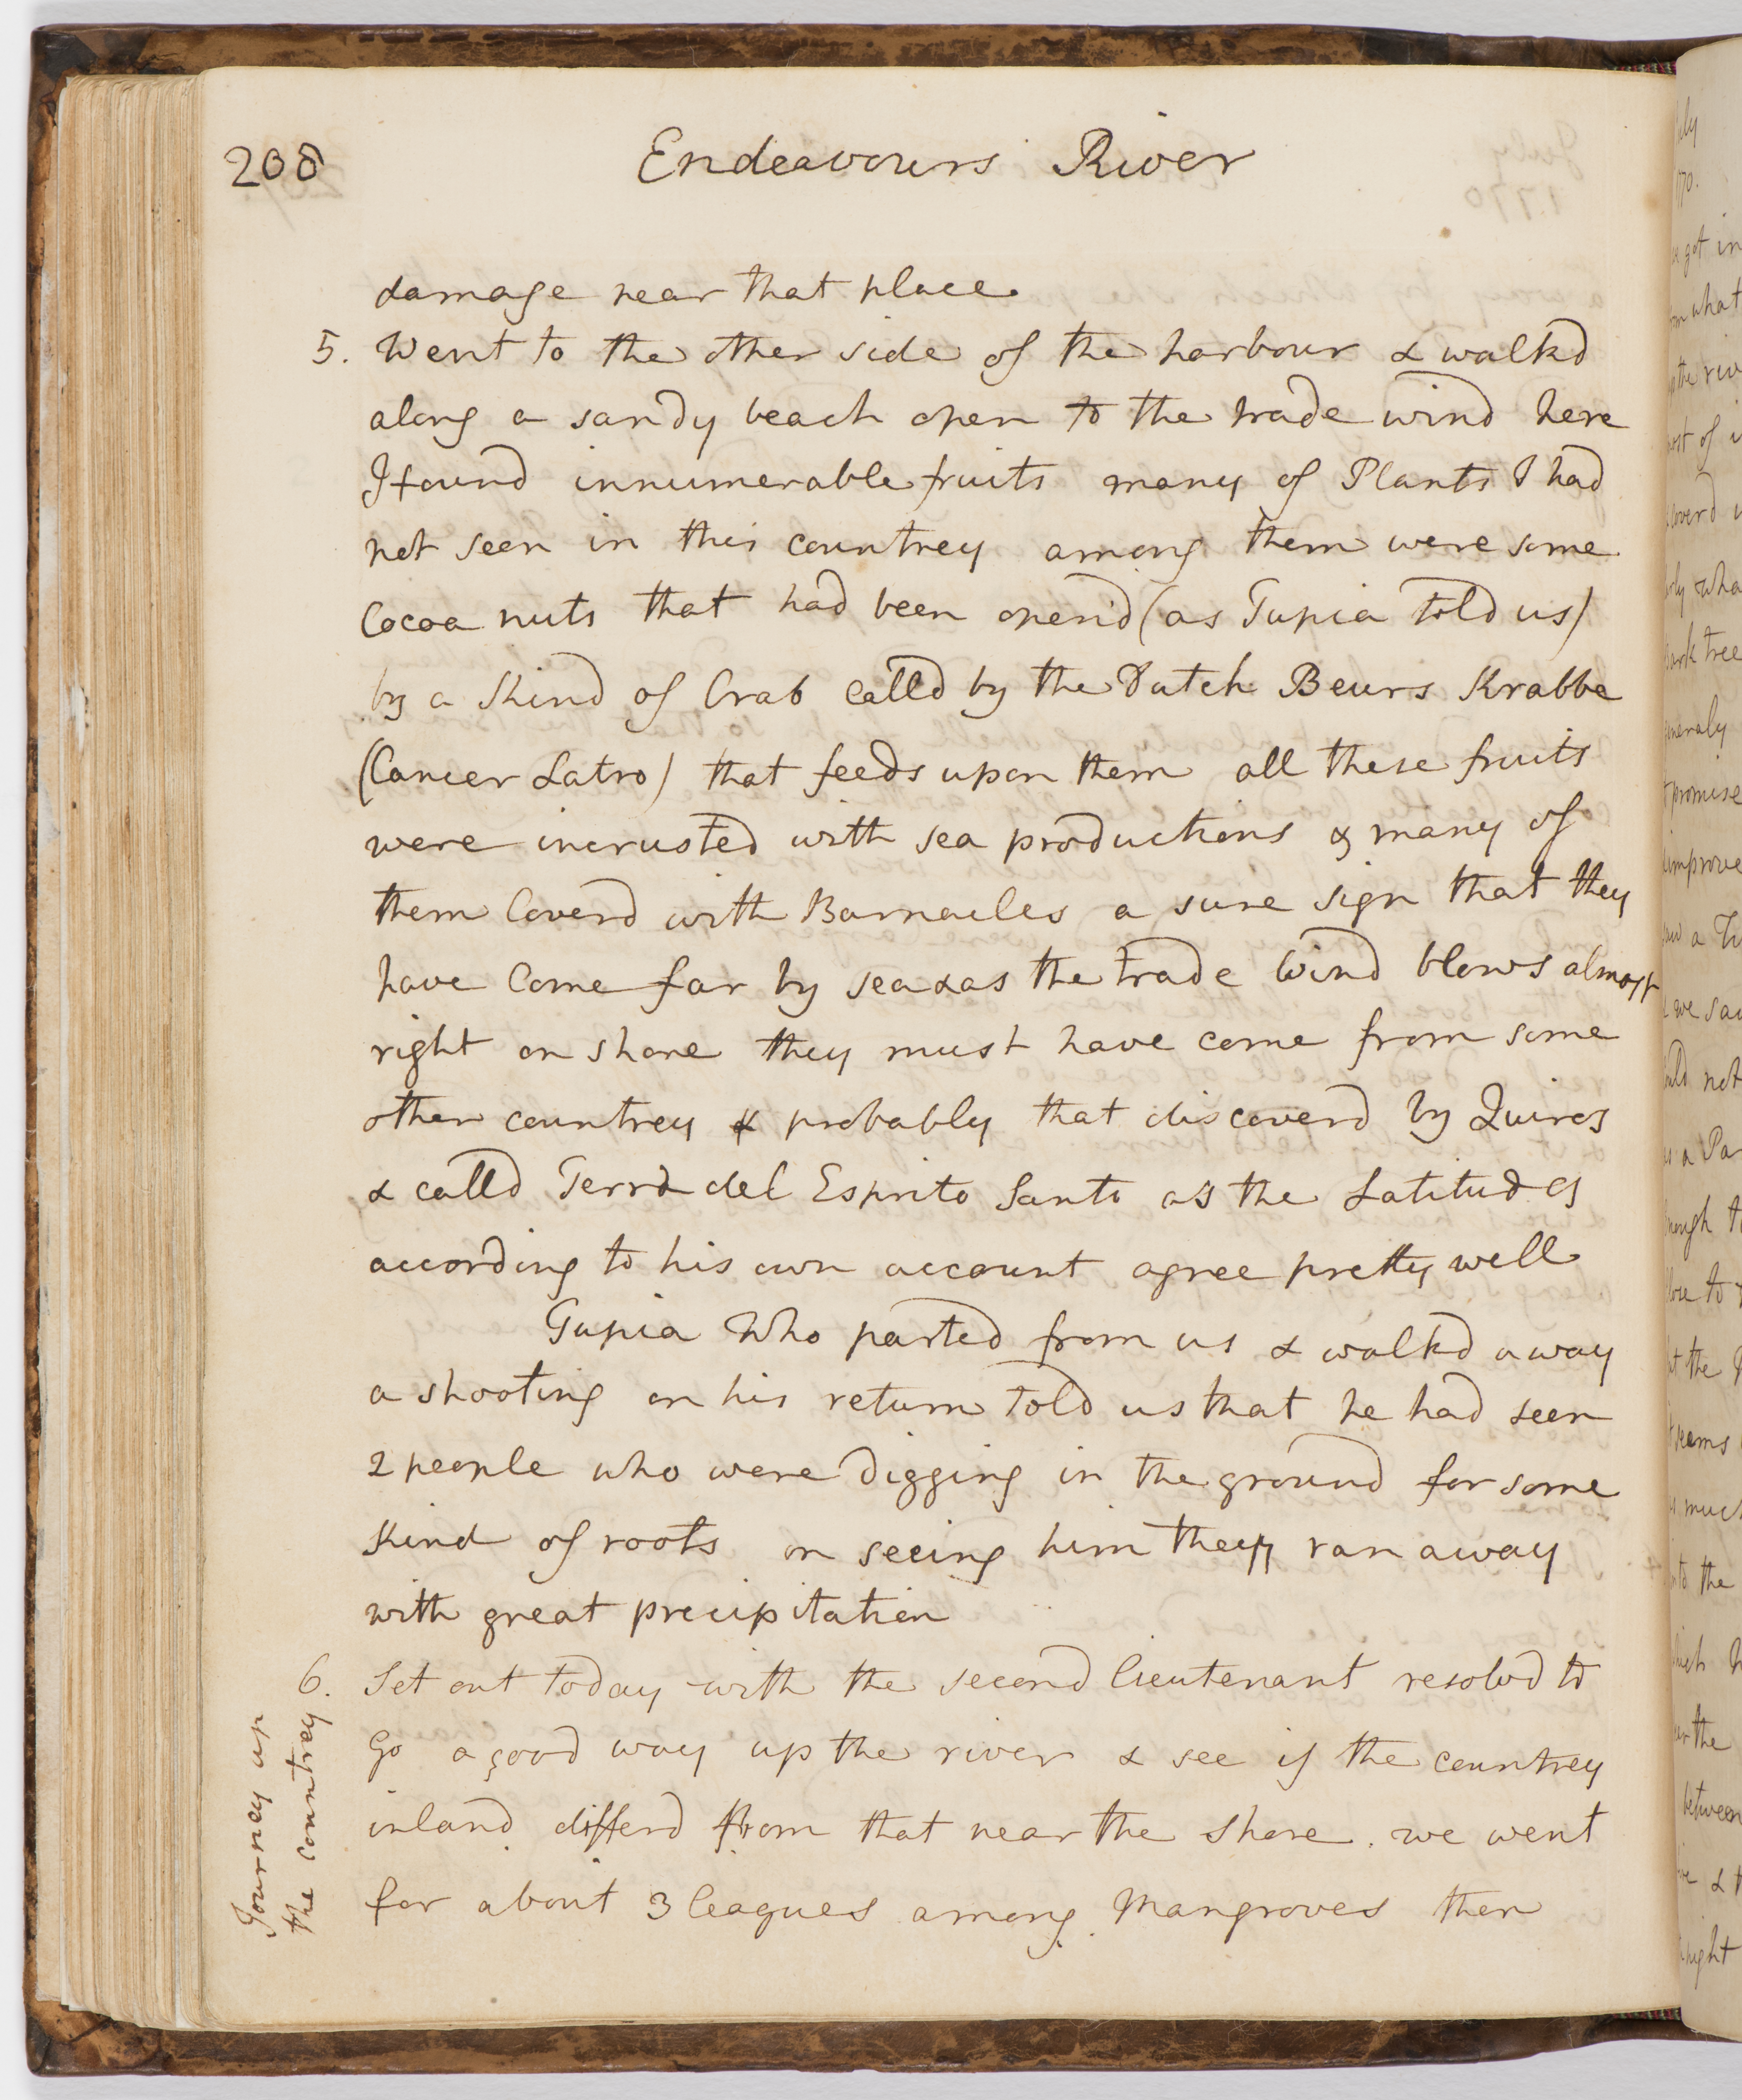 208
Endeavours River
damage near that place.
5. Went to the other side of the harbour & walkd
along a sandy beach open to the trade wind here
I found innumerable fruits many of Plants I had
not seen in this countrey among them were some
Cocoa nuts that had been open'd (as Tupia told us)
by a kind of Crab calld by the Dutch Beurs Krabbe
(Cancer Latro) that feeds upon them all these fruits
were incrusted with sea productions & many of
them Coverd with Barnacles a sure sign that they
have Come far by sea & as the trade Wind blows almost
right on shore they must have come from some
other countrey & probably that discoverd by Quiros
& calld Terra del Esprito Santo as the Latitudes
according to his own account agree pretty well
Tupia Who parted from us & walkd away
a shooting on his return told us that he had seen
2 people who were digging in the ground for some
kind of roots on seeing him they ran away
with great precipitation
6. Set out today with the second lieutenant resolvd to
Go a good way up the river & see if the countrey
inland differd from that near the shore. we went
for about 3 leagues among Mangroves then
Journey up
the countrey